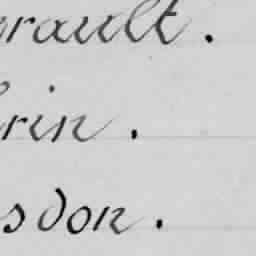 rault.
rin.
sdon.